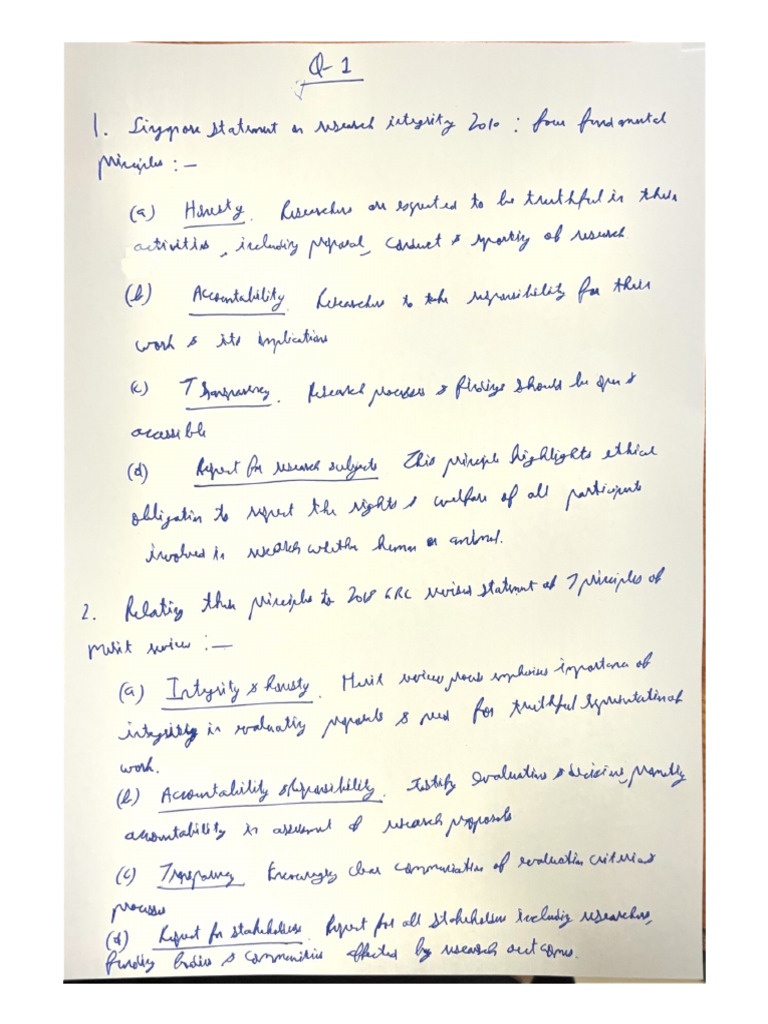 Q-1
1. Singapore statement on research integrity 2010 : four fundamental
principles :-
(a) Honesty. Researchers are expected to be truthful in their
activities, including proposal, conduct & reporting of research.
(b) Accountability. Researchers to take responsibility for their
work & its implications
(c) Transparency. Research processes & findings should be open &
accessible
(d) Respect for research subjects This principle highlights ethical
obligation to respect the rights & welfare of all participants
involved in research whether human or animal.
2. Relating these principles to 2018 GRC revised statement of 7 principles of
merit review :-
(a) Integrity & honesty. Merit review process emphasises importance of
integrity in evaluating proposals & need for truthful representation of
work.
(b) Accountability & Responsibility. Justify evaluations & decisions, promoting
accountability in assessment of research proposals
(c) Transparency Encourages clear communication of evaluation criteria &
processes
(d) Respect for stakeholders. Respect for all stakeholders including researchers,
funding bodies & communities affected by research outcomes.